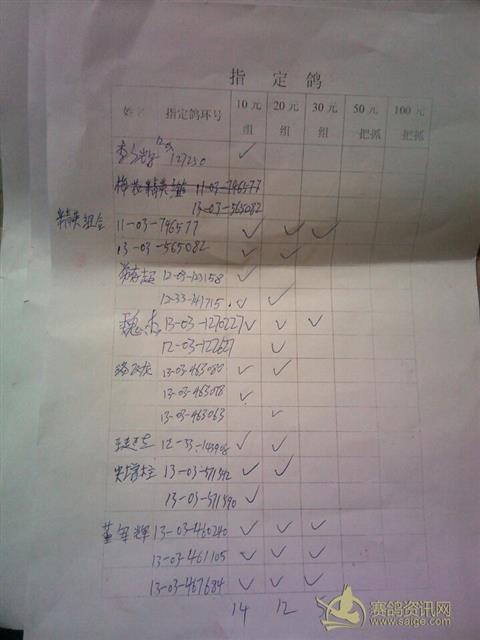 指 定 鸽
姓名 指定鸽环号 10元组 20元组 30元组 50元把抓 100元把抓
127250 ✓
11-03-796577
13-03-565082
精英组合
11-03-796577 ✓ ✓ ✓
13-03-565082 ✓ ✓
12-03-123158 ✓
12-33-141715 ✓ ✓
魏杰 13-03-1270227 ✓ ✓ ✓
12-03-122627 ✓
13-03-463080 ✓ ✓
13-03-463078 ✓
13-03-463063 ✓
12-33-143908 ✓ ✓
13-03-571542 ✓ ✓
13-03-571590 ✓
董军辉 13-03-460240 ✓ ✓ ✓
13-03-461105 ✓ ✓ ✓
13-03-467684 ✓ ✓ ✓
14 12
赛鸽资讯网
www.saige.com